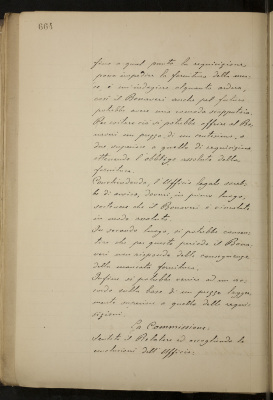 664
fino a qual punto la requisizione,
possa impedire la fornitura della mer-
ce, è un'indagine alquanto ardua,
così il Bonavri anche pel futuro
potrebbe avere una comoda scappatoia.
Per evitare ciò si potrebbe offrire al Bo-
navri un prezzo, di un centesimo, o
due superiore a quello di requisizione
ottenendo l'obbligo assoluto della
fornitura.
Conchiudendo, l'Ufficio legale sareb-
be di avviso, doversi, in primo luogo,
sostenere che il Bonavri è vincolato
in modo assoluto.
In secondo luogo, si potrebbe conten-
dere che per questo periodo il Bona-
vri non risponde delle conseguenze
della mancata fornitura.
Infine si potrebbe venire ad un ac-
cordo sulla base di un prezzo legger-
mente superiore a quello delle requi-
sizioni.
La Commissione
Sentito il Relatore ed accogliendo le
conclusioni dell'Ufficio;